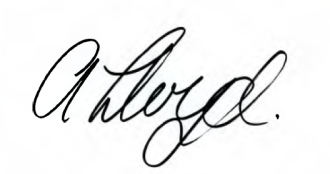 A Lloyd.